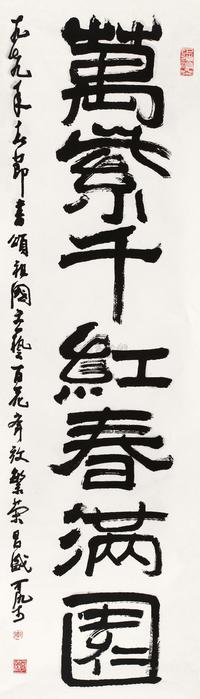 萬紫千紅春滿園
年春節書頌祖國文藝百花齊放繁榮昌盛